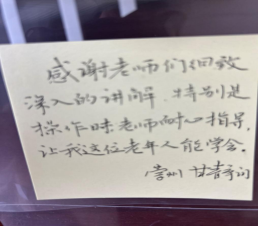 感谢老师们细致
深入的讲解，特别是
操作时老师耐心指导，
让我这位老年人能学会。
常州